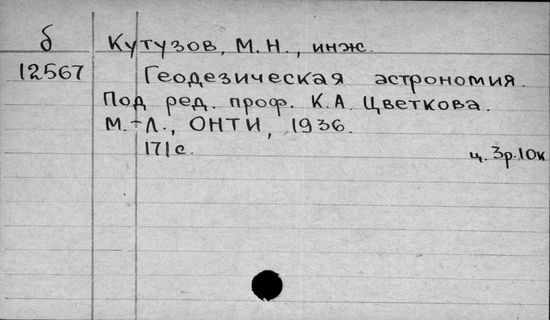 б
Кутузов, М.Н., инж.
12567
Геодезическая астрономия.
Под ред. проф. К.А. Цветкова.
М.-Л., ОНТИ, 1936.
171с.
ц. 3р.10к